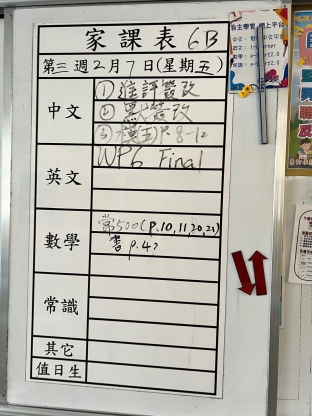 家課表 6B
第三週2月7日(星期五)
中文
①進評簽改
②默簽改
③模王P.8-12
英文
WP6 Final
數學
常500(P.10,11,20,21)
書 p.47
常識
其它
值日生